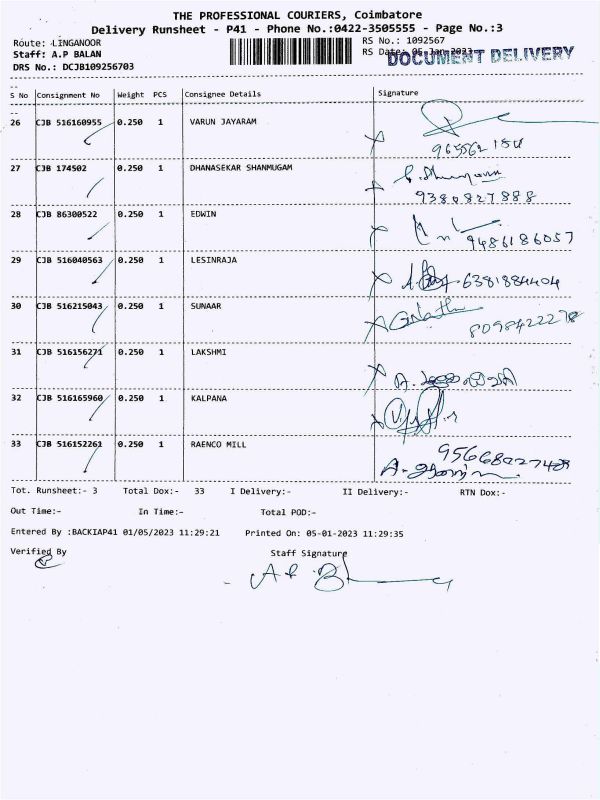 THE PROFESSIONAL COURIERS, Coimbatore
Delivery Runsheet - P41 - Phone No.:0422-3505555 - Page No.:3
Route: LINGANOOR
RS No.: 1092567
Staff: A.P BALAN
RS Date: 05-Jan-2023
DOCUMENT DELIVERY
DRS No.: DCJB109256703
S No Consignment No Weight PCS Consignee Details Signature
26 CJB 516160955 0.250 1 VARUN JAYARAM
27 CJB 174502 0.250 1 DHANASEKAR SHANMUGAM
9380827888
28 CJB 86300522 0.250 1 EDWIN
9486186057
29 CJB 516040563 0.250 1 LESINRAJA
6381884404
30 CJB 516215043 0.250 1 SUNAAR
8098422278
31 CJB 516156271 0.250 1 LAKSHMI
32 CJB 516165960 0.250 1 KALPANA
33 CJB 516152261 0.250 1 RAENCO MILL
Tot. Runsheet:- 3 Total Dox:- 33 I Delivery:- II Delivery:- RTN Dox:-
Out Time:- In Time:- Total POD:-
Entered By :BACKIAP41 01/05/2023 11:29:21 Printed On: 05-01-2023 11:29:35
Verified By Staff Signature